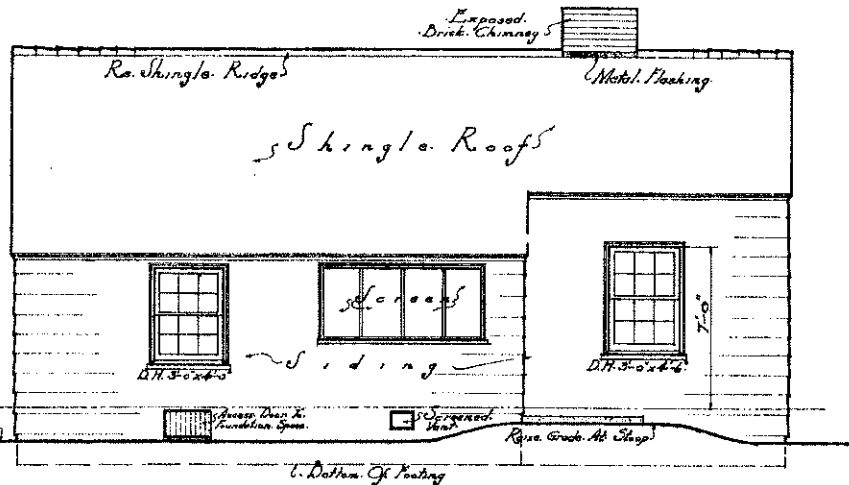 Exposed
Brick Chimney
Re. Shingle. Ridge
Metal. Flashing
Shingle. Roof
Screen
7'-0"
Siding
D.H. 3'-0"x4'-
D.H. 3'-0"x4'-6"
Access Door To
Foundation Space
Screened
Vent
Raise Grade At Stoop
Bottom Of Footing